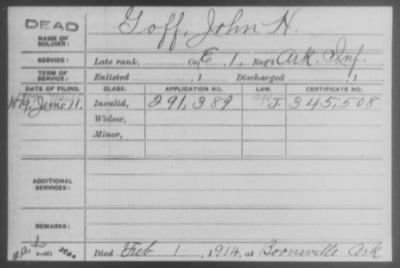 DEAD
NAME OF SOLDIER: Goff, John H.
SERVICE: Late rank, Co. E, 1, Reg't Ark. Inf.
TERM OF SERVICE: Enlisted , 1 Discharged , 1
DATE OF FILING. CLASS. APPLICATION NO. LAW. CERTIFICATE NO.
June 11. Invalid, 291,389 J. 345,508
Widow,
Minor,
ADDITIONAL SERVICES:
REMARKS:
Died Feb 1, 1914, at Booneville Ark